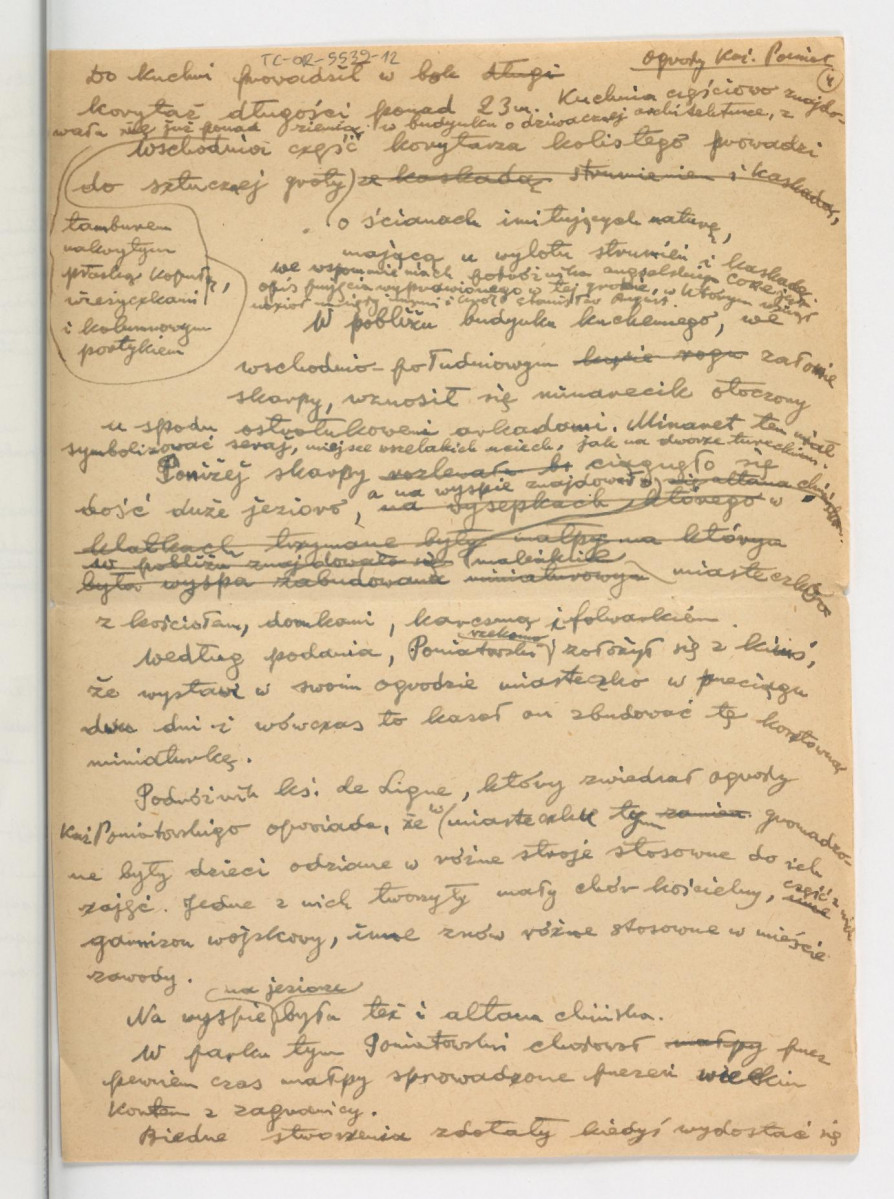 TC-OR-5539-12
Ogrody Kaz. Poniat.
4
Do kuchni prowadził w bok długi
korytarz długości ponad 23 m. Kuchnia częściowo znajdo-
wała się już ponad ziemią w budynku o dziwacznej architekturze, z
tamburem
nakrytym
płaską kopułą,
wieżyczkami
i kolumnowym
portykiem
Wschodnia część korytarza kolistego prowadzi
do sztucznej groty ze kaskadą strumieniem i kaskadą,
o ścianach imitujących naturę,
mającą u wylotu strumień i kaskadę.
we wspomnieniach podróżnika angielskiego Coxe jest
opis przyjęcia wyprawionego w tej grocie, w którym wziął
udział między innymi i król Stanisław August.
W pobliżu budynku kuchennego, we
wschodnio-południowym rogu załomie
skarpy, wznosił się minarecik otoczony
u spodu ostrołukowemi arkadami. Minaret ten miał
symbolizować seraj, miejsce wszelakich uciech, jak na dworze tureckim.
Poniżej skarpy rozlewało ciągnęło się
a na wyspie znajdowała się altana chińska.
dość duże jezioro, na wysepkach którego w
klatkach trzymane były małpy na którym
w pobliżu znajdowało się maleńkie
była wyspa zabudowana miniaturowym miasteczkiem
z kościołem, domkami, karczmą i folwarkiem.
Według podania, Poniatowski rzekomo założył się z kimś,
że wystawi w swoim ogrodzie miasteczko w przeciągu
dwu dni i wówczas to kazał on zbudować tę kosztowną
miniaturkę.
Podróżnik ks. de Ligne, który zwiedzał ogrody
Kaz. Poniatowskiego opowiada, że w miasteczku tym gromadzo-
ne były dzieci odziane w różne stroje stosowne do ich
zajęć. Jedne z nich tworzyły mały chór kościelny, inne część z nich
garnizon wojskowy, inne znów różne stosowne w mieście
zawody.
na jeziorze
Na wyspie była też i altana chińska.
W parku tym Poniatowski chował małpy przez
pewien czas małpy sprowadzone przezeń wielkim
kosztem z zagranicy.
Biedne stworzenia zdołały kiedyś wydostać się